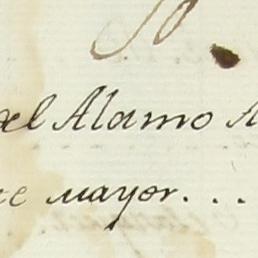 del Alamo
mayor. . . .